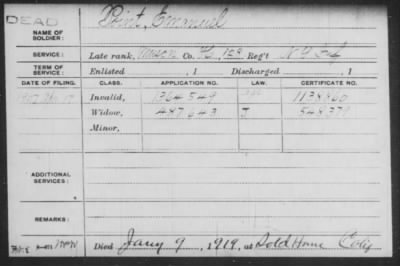 DEAD
NAME OF SOLDIER: Point, Emanuel
SERVICE: Late rank, Co. 129 Reg't N.Y.
TERM OF SERVICE: Enlisted , 1 Discharged , 1
DATE OF FILING. CLASS. APPLICATION NO. LAW. CERTIFICATE NO.
Invalid, 1364549 1138860
Widow, J
Minor,
ADDITIONAL SERVICES:
REMARKS:
Died Jany 9, 1919, at Sold Home